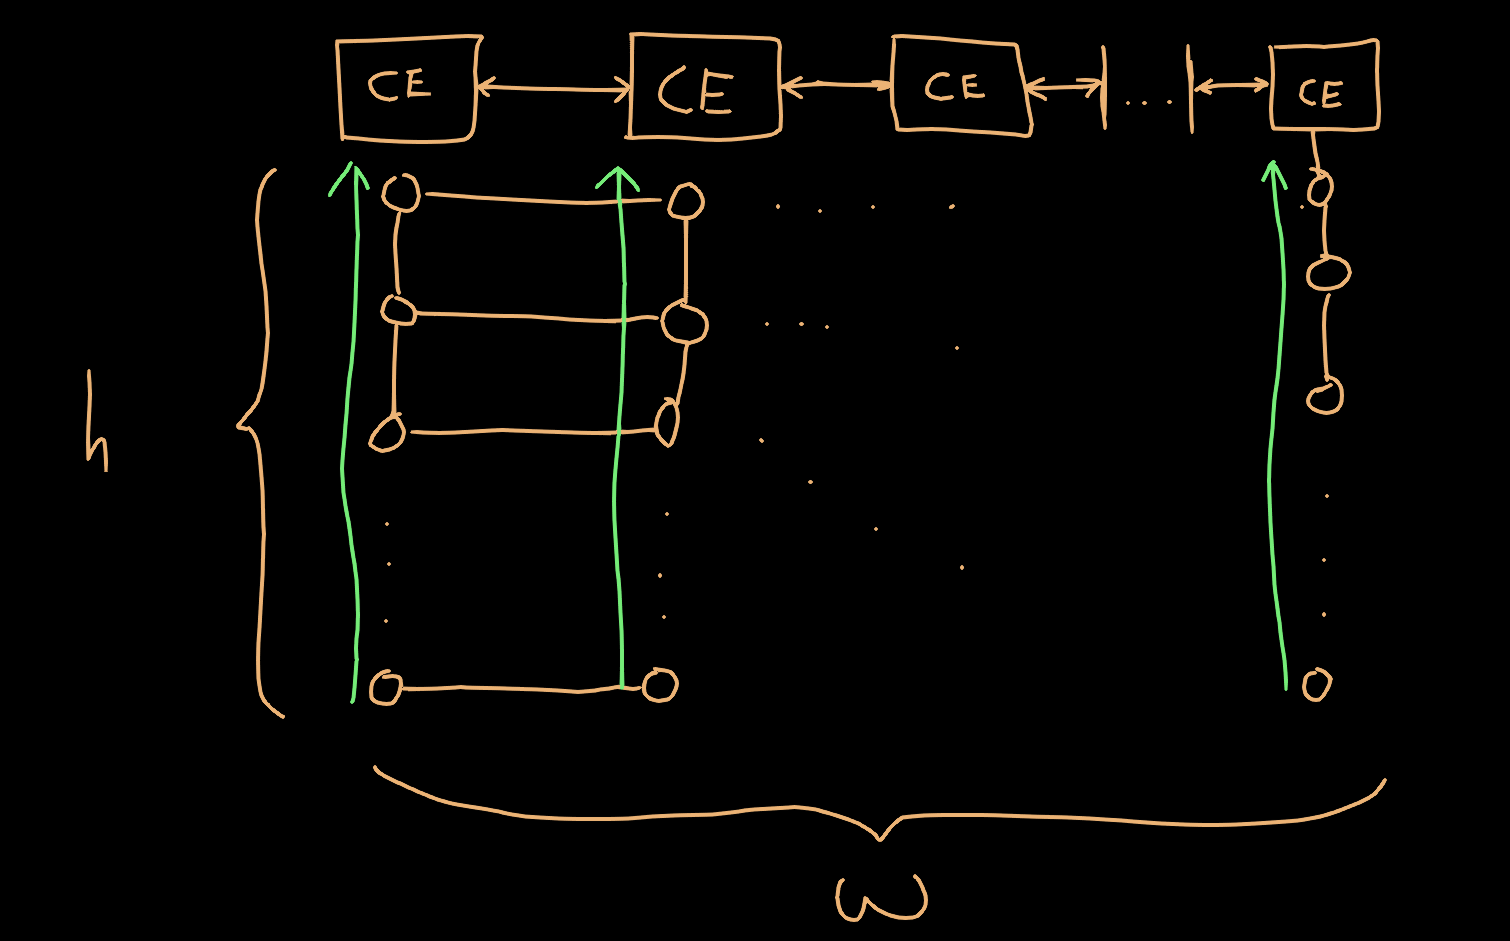 CE CE CE .... CE
h
w